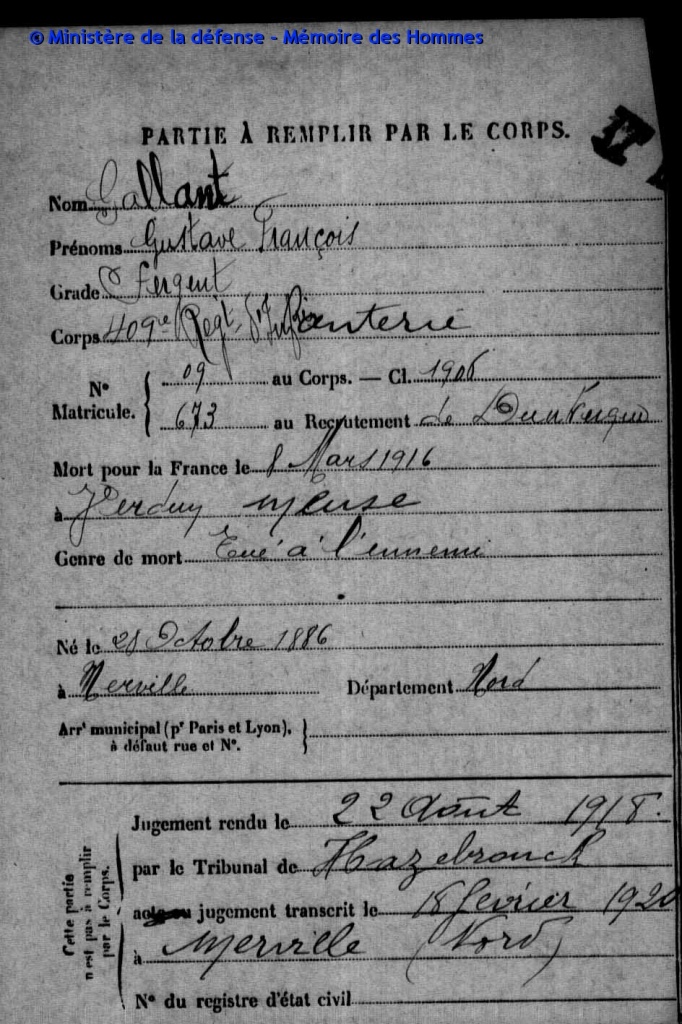 © Ministère de la défense - Mémoire des Hommes
PARTIE À REMPLIR PAR LE CORPS.
Nom Gallant
Prénoms Gustave François
Grade Sergent
Corps 409e Regt d'Infanterie
N° Matricule. { 09 au Corps. — Cl. 1906
673 au Recrutement de Dunkerque
Mort pour la France le 8 Mars 1916
à Verdun Meuse
Genre de mort Tué à l'ennemi
Né le 28 Octobre 1886
à Merville Département Nord
Arrt municipal (pr Paris et Lyon), à défaut rue et N°. }
Cette partie n'est pas à remplir par le Corps.
Jugement rendu le 22 Août 1918.
par le Tribunal de Hazebrouck
jugement transcrit le 18 février 1920
à Merville (Nord)
N° du registre d'état civil